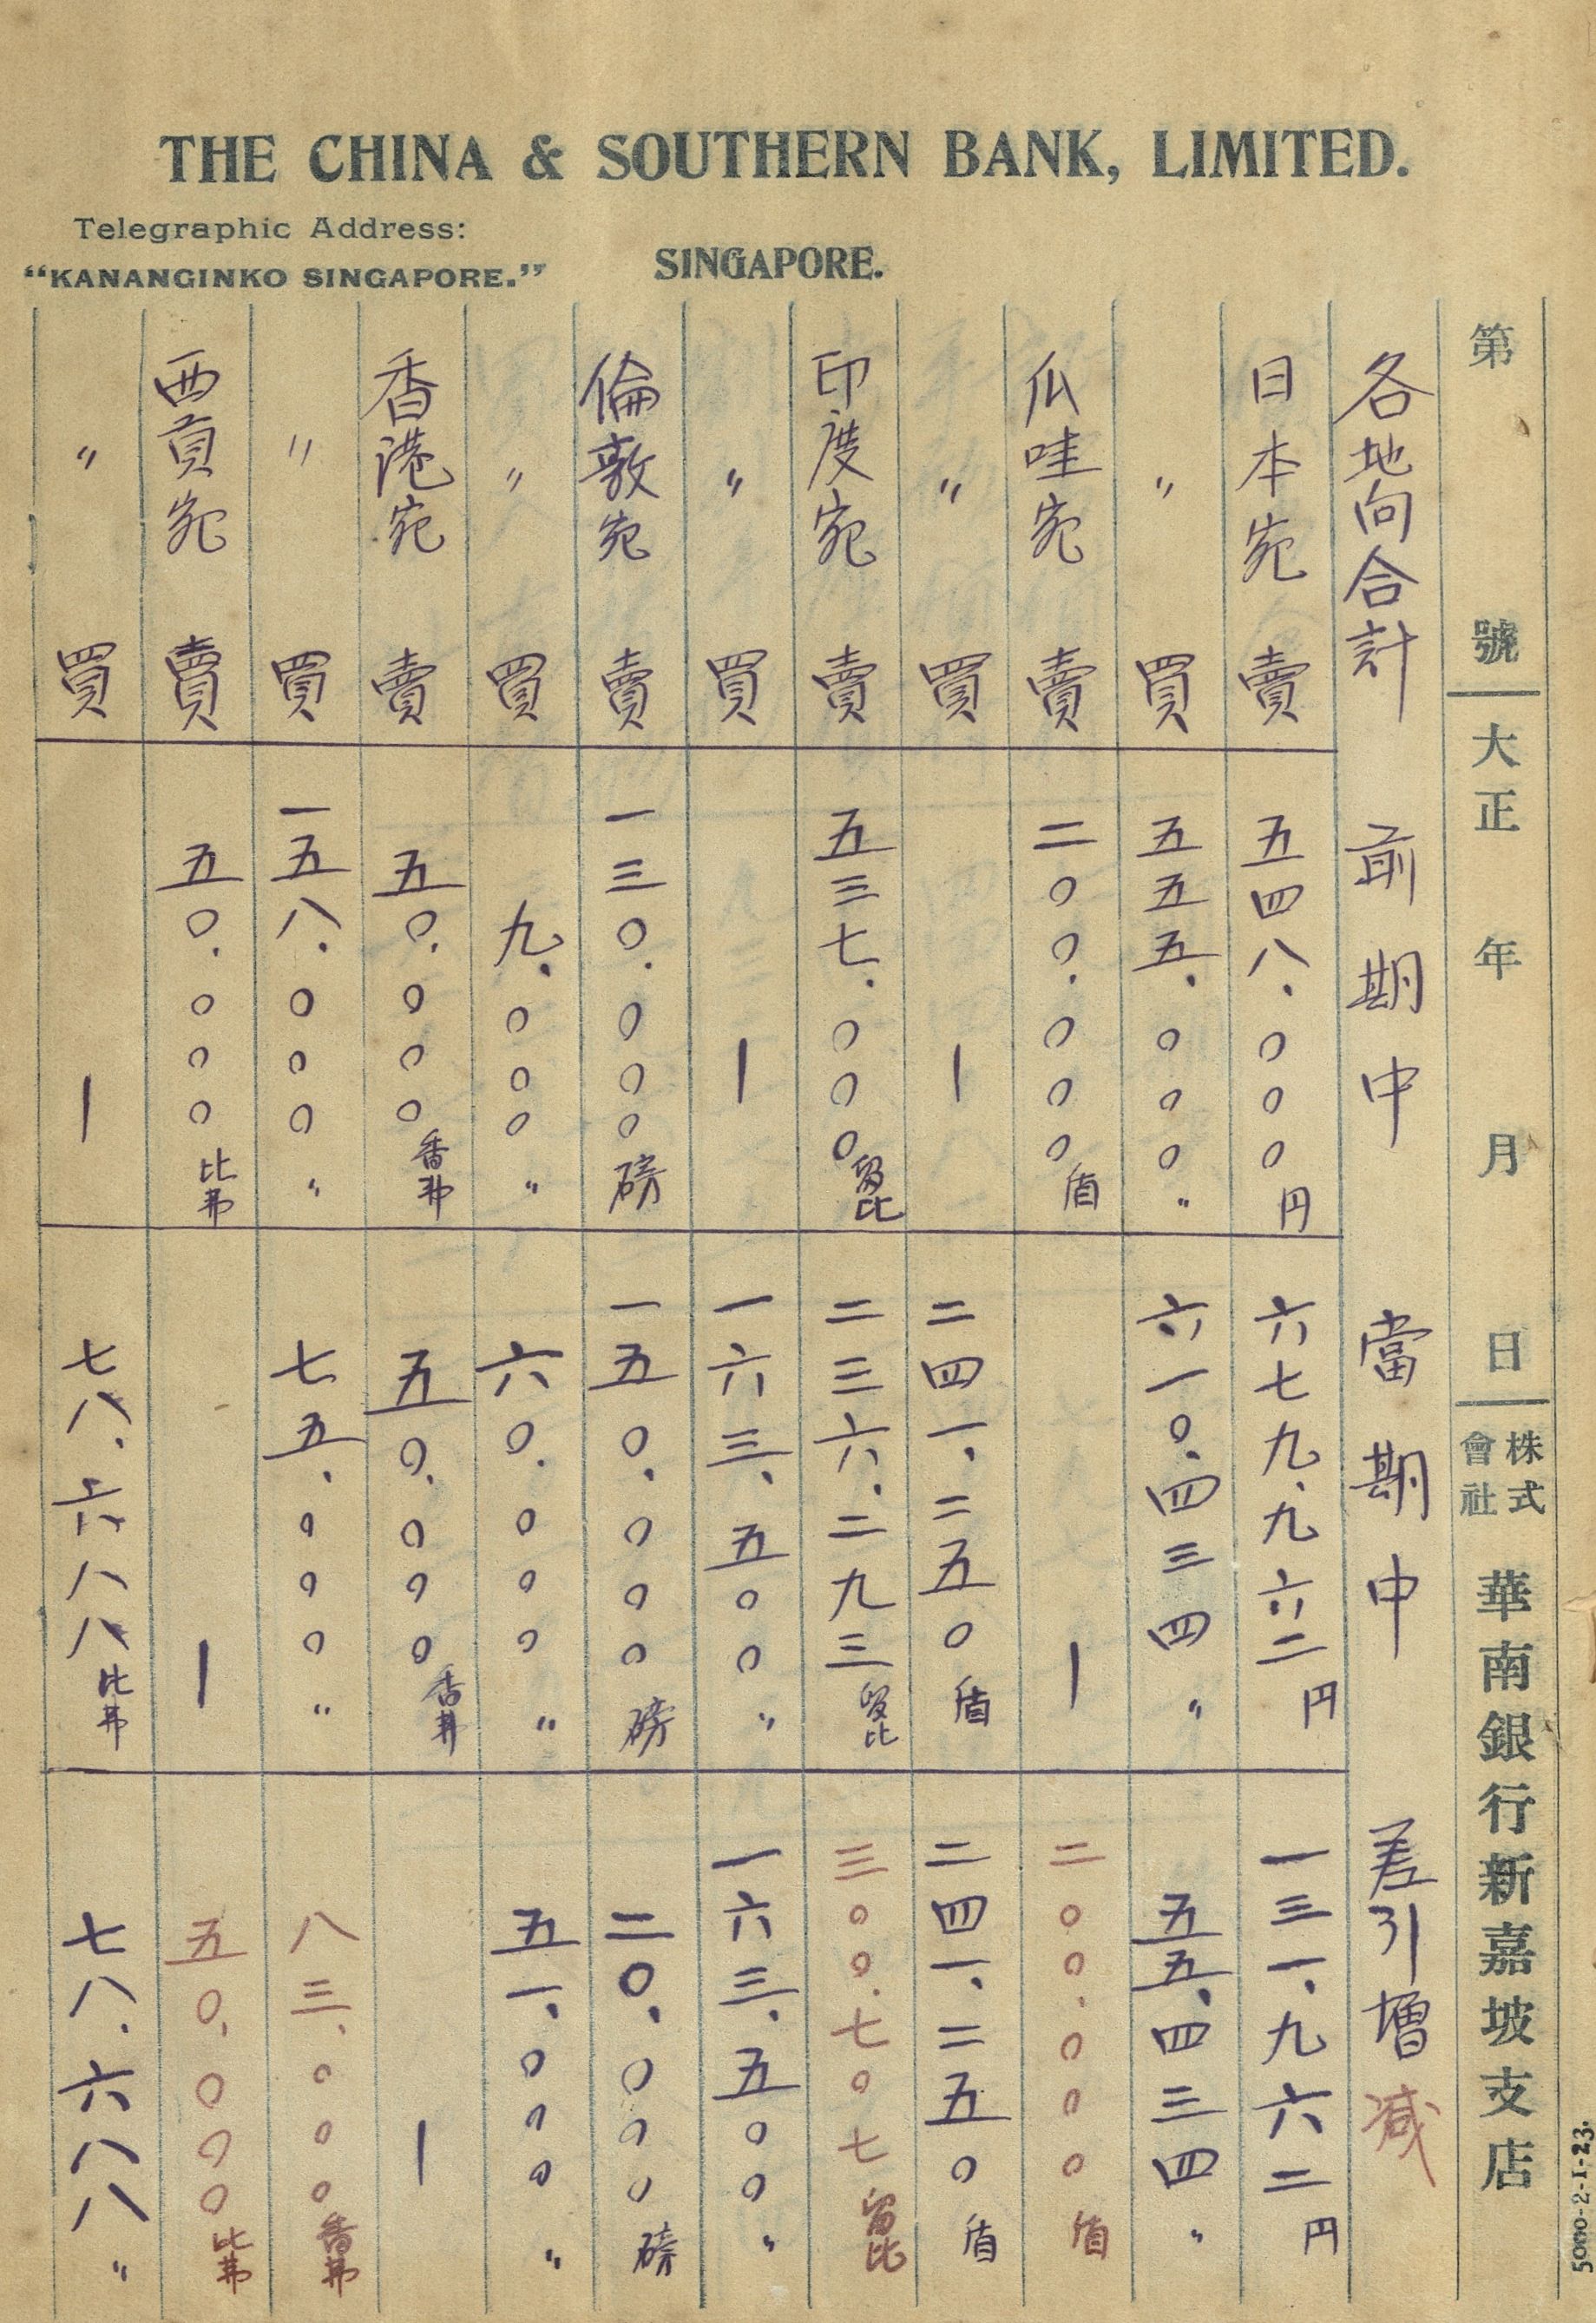 THE CHINA & SOUTHERN BANK, LIMITED.
Telegraphic Address:
“KANANGINKO SINGAPORE.”
SINGAPORE.
第　號　大正　年　月　日　株式會社　華南銀行新嘉坡支店
各地向合計　前期中　當期中　差引增減
日本宛　賣　五四八.〇〇〇円　六七九、九六二円　一三一、九六二円
〃　買　五五五、〇〇〇〃　六一〇、四三四〃　五五、四三四〃
爪哇宛　賣　二〇〇.〇〇〇盾　|　二〇〇.〇〇〇盾
〃　買　|　二四一、二五〇盾　二四一、二五〇盾
印度宛　賣　五三七.〇〇〇留比　二三六.二九三留比　三〇〇.七〇七留比
〃　買　|　一六三、五〇〇〃　一六三、五〇〇〃
倫敦宛　賣　一三〇.〇〇〇磅　一五〇、〇〇〇磅　二〇、〇〇〇磅
〃　買　九、〇〇〇〃　六〇.〇〇〇〃　五一、〇〇〇〃
香港宛　賣　五〇.〇〇〇香弗　五〇.〇〇〇香弗　|
〃　買　一五八.〇〇〇〃　七五.〇〇〇〃　八三、〇〇〇香弗
西貢宛　賣　五〇.〇〇〇比弗　|　五〇.〇〇〇比弗
〃　買　|　七八.六八八比弗　七八.六八八〃
5000-2-1-23.